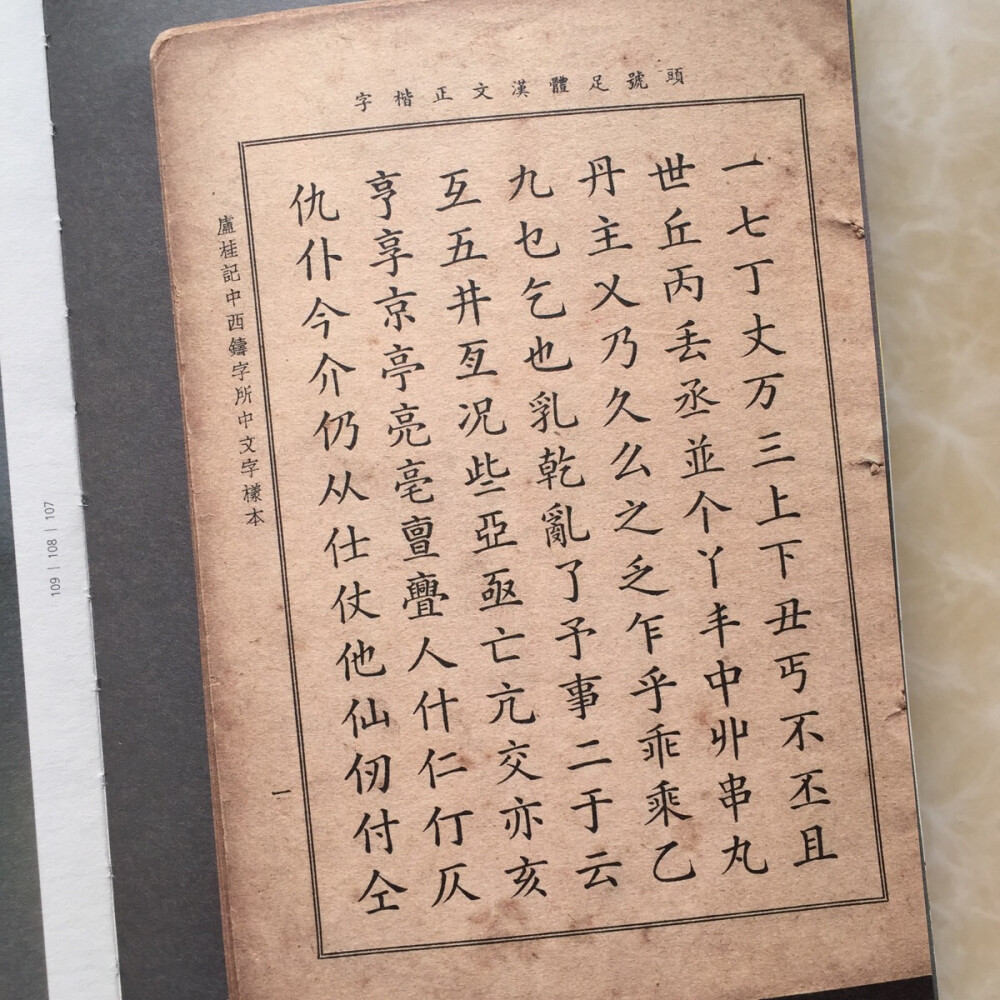 頭號足體漢文正楷字
一七丁丈万三上下丑丐不丕且
世丘丙丟丞並个丫丰中丱串丸
丹主乂乃久么之乏乍乎乖乘乙
九乜乞也乳乾亂了予事二于云
互五井亙况些亞亟亡亢交亦亥
亨享京亭亮亳亶亹人什仁仃仄
仇仆今介仍从仕仗他仙仞付仝
盧桂記中西鑄字所中文字樣本
一
109 | 108 | 107